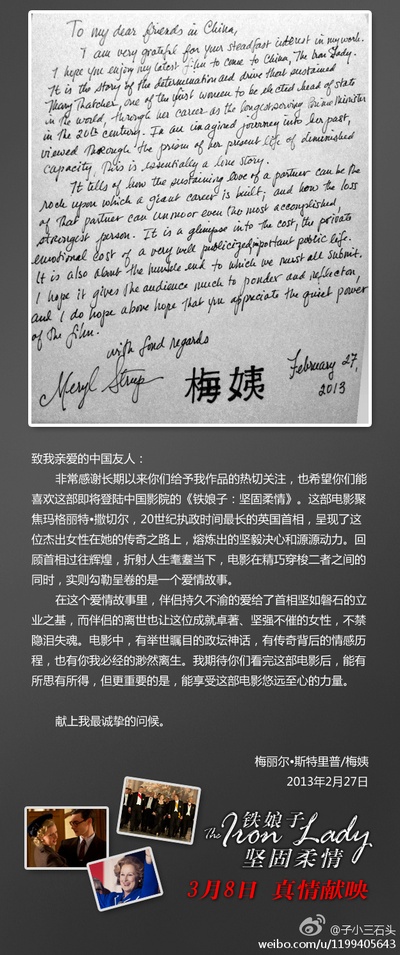 To my dear friends in China,
I am very grateful for your steadfast interest in my work.
I hope you enjoy my latest film to come to China, The Iron Lady.
It is the story of the determination and drive that sustained
Margaret Thatcher, one of the first women to be elected head of state
in the world, through her career as the longest serving Prime Minister
in the 20th century. In an imagined journey into her past,
viewed through the prism of her present life of diminished
capacity, this is essentially a love story.
It tells of how the sustaining love of a partner can be the
rock upon which a giant career is built; and how the loss
of that partner can unmoor even the most accomplished,
strongest person. It is a glimpse into the cost, the private
emotional cost of a very well publicized important public life.
It is also about the humble end to which we must all submit.
I hope it gives the audience much to ponder and reflection,
and I do hope above hope that you appreciate the quiet power
of the film.
with fond regards
Meryl Streep 梅姨 February 27, 2013
致我亲爱的中国友人：
非常感谢长期以来你们给予我作品的热切关注，也希望你们能
喜欢这部即将登陆中国影院的《铁娘子：坚固柔情》。这部电影聚
焦玛格丽特•撒切尔，20世纪执政时间最长的英国首相，呈现了这
位杰出女性在她的传奇之路上，熔炼出的坚毅决心和源源动力。回
顾首相过往辉煌，折射人生耄耋当下，电影在精巧穿梭二者之间的
同时，实则勾勒呈卷的是一个爱情故事。
在这个爱情故事里，伴侣持久不渝的爱给了首相坚如磐石的立
业之基，而伴侣的离世也让这位成就卓著、坚强不催的女性，不禁
隐泪失魂。电影中，有举世瞩目的政坛神话，有传奇背后的情感历
程，也有你我必经的渺然离生。我期待你们看完这部电影后，能有
所思有所得，但更重要的是，能享受这部电影悠远至心的力量。
献上我最诚挚的问候。
梅丽尔•斯特里普/梅姨
2013年2月27日
铁娘子
The Iron Lady
坚固柔情
3月8日 真情献映
@子小三石头
weibo.com/u/1199405643